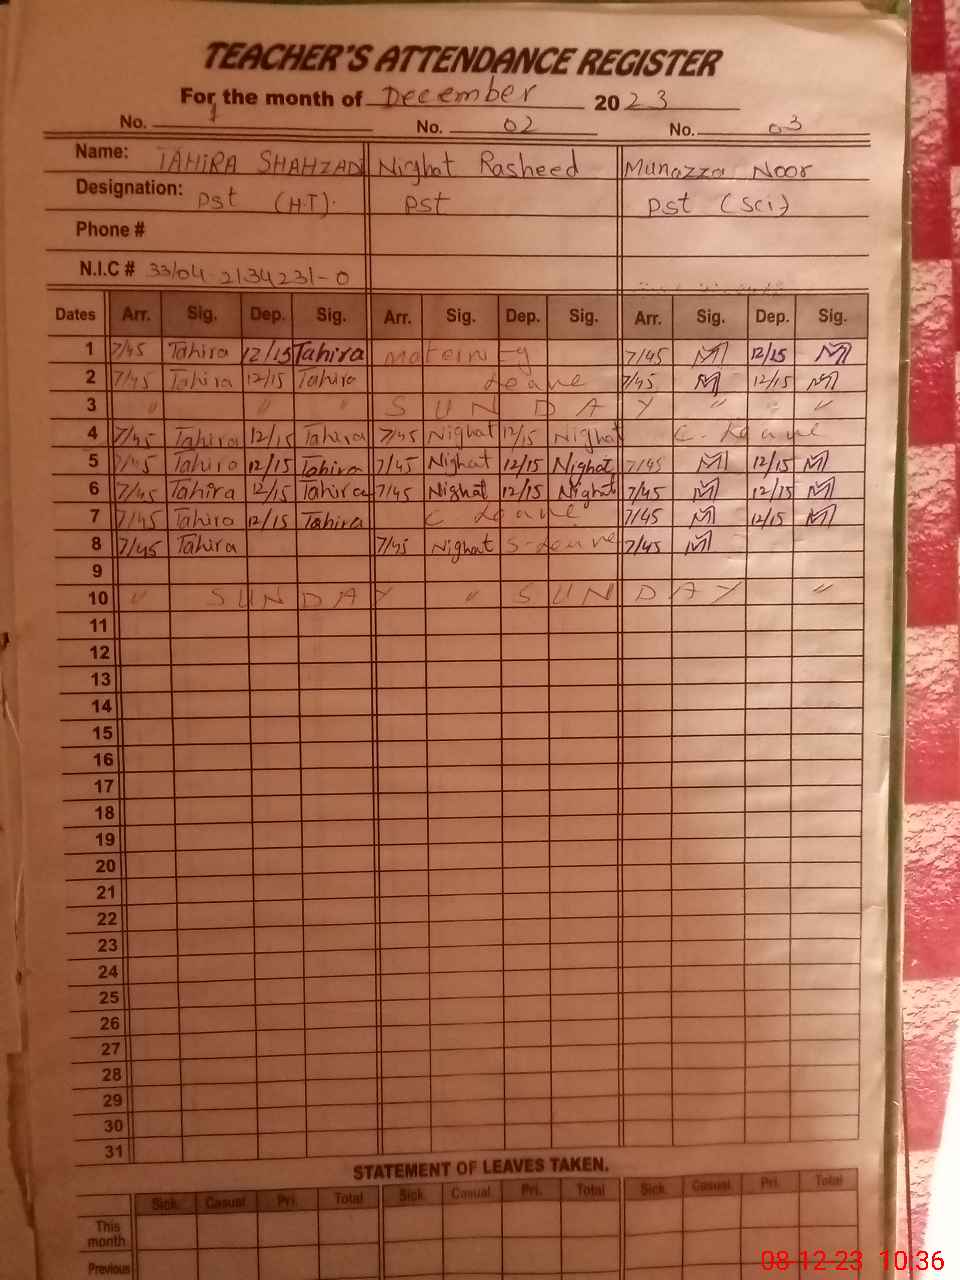 TEACHER'S ATTENDANCE REGISTER
For the month of December 2023
No. 1 No. 02 No. 03
Name: TAHIRA SHAHZADI Nighat Rasheed Munazza Noor
Designation: Pst (H.T). Pst Pst (Sci)
Phone #
N.I.C #
Dates Arr. Sig. Dep. Sig. Arr. Sig. Dep. Sig. Arr. Sig. Dep. Sig.
1 7/45 Tahira 12/15 Tahira Materni ty 7/45 12/15
2 7/45 Tahira 12/15 Tahira Leave 7/45 12/15
3 " " " S U N D A Y " " "
4 7/45 Tahira 12/15 Tahira 7/45 Nighat 12/15 Nighat C. Leave
5 7/45 Tahira 12/15 Tahira 7/45 Nighat 12/15 Nighat 7/45 12/15
6 7/45 Tahira 12/15 Tahira 7/45 Nighat 12/15 Nighat 7/45 12/15
7 7/45 Tahira 12/15 Tahira C Leave 7/45 12/15
8 7/45 Tahira 7/45 Nighat S-Leave 7/45
9
10 " S U N D A Y " S U N D A Y "
11
12
13
14
15
16
17
18
19
20
21
22
23
24
25
26
27
28
29
30
31
STATEMENT OF LEAVES TAKEN.
Sick. Casual Pri. Total Sick. Casual Pri. Total Sick. Casual. Pri. Total
This month
Previous
08-12-23 10:36